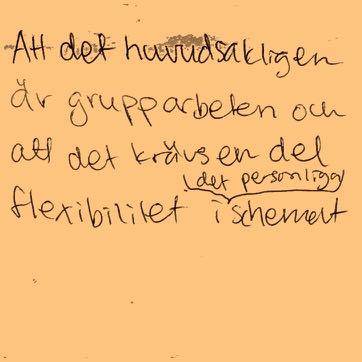 Att det huvudsakligen
är grupparbeten och
att det krävs en del
i det personliga
flexibilitet i schemat